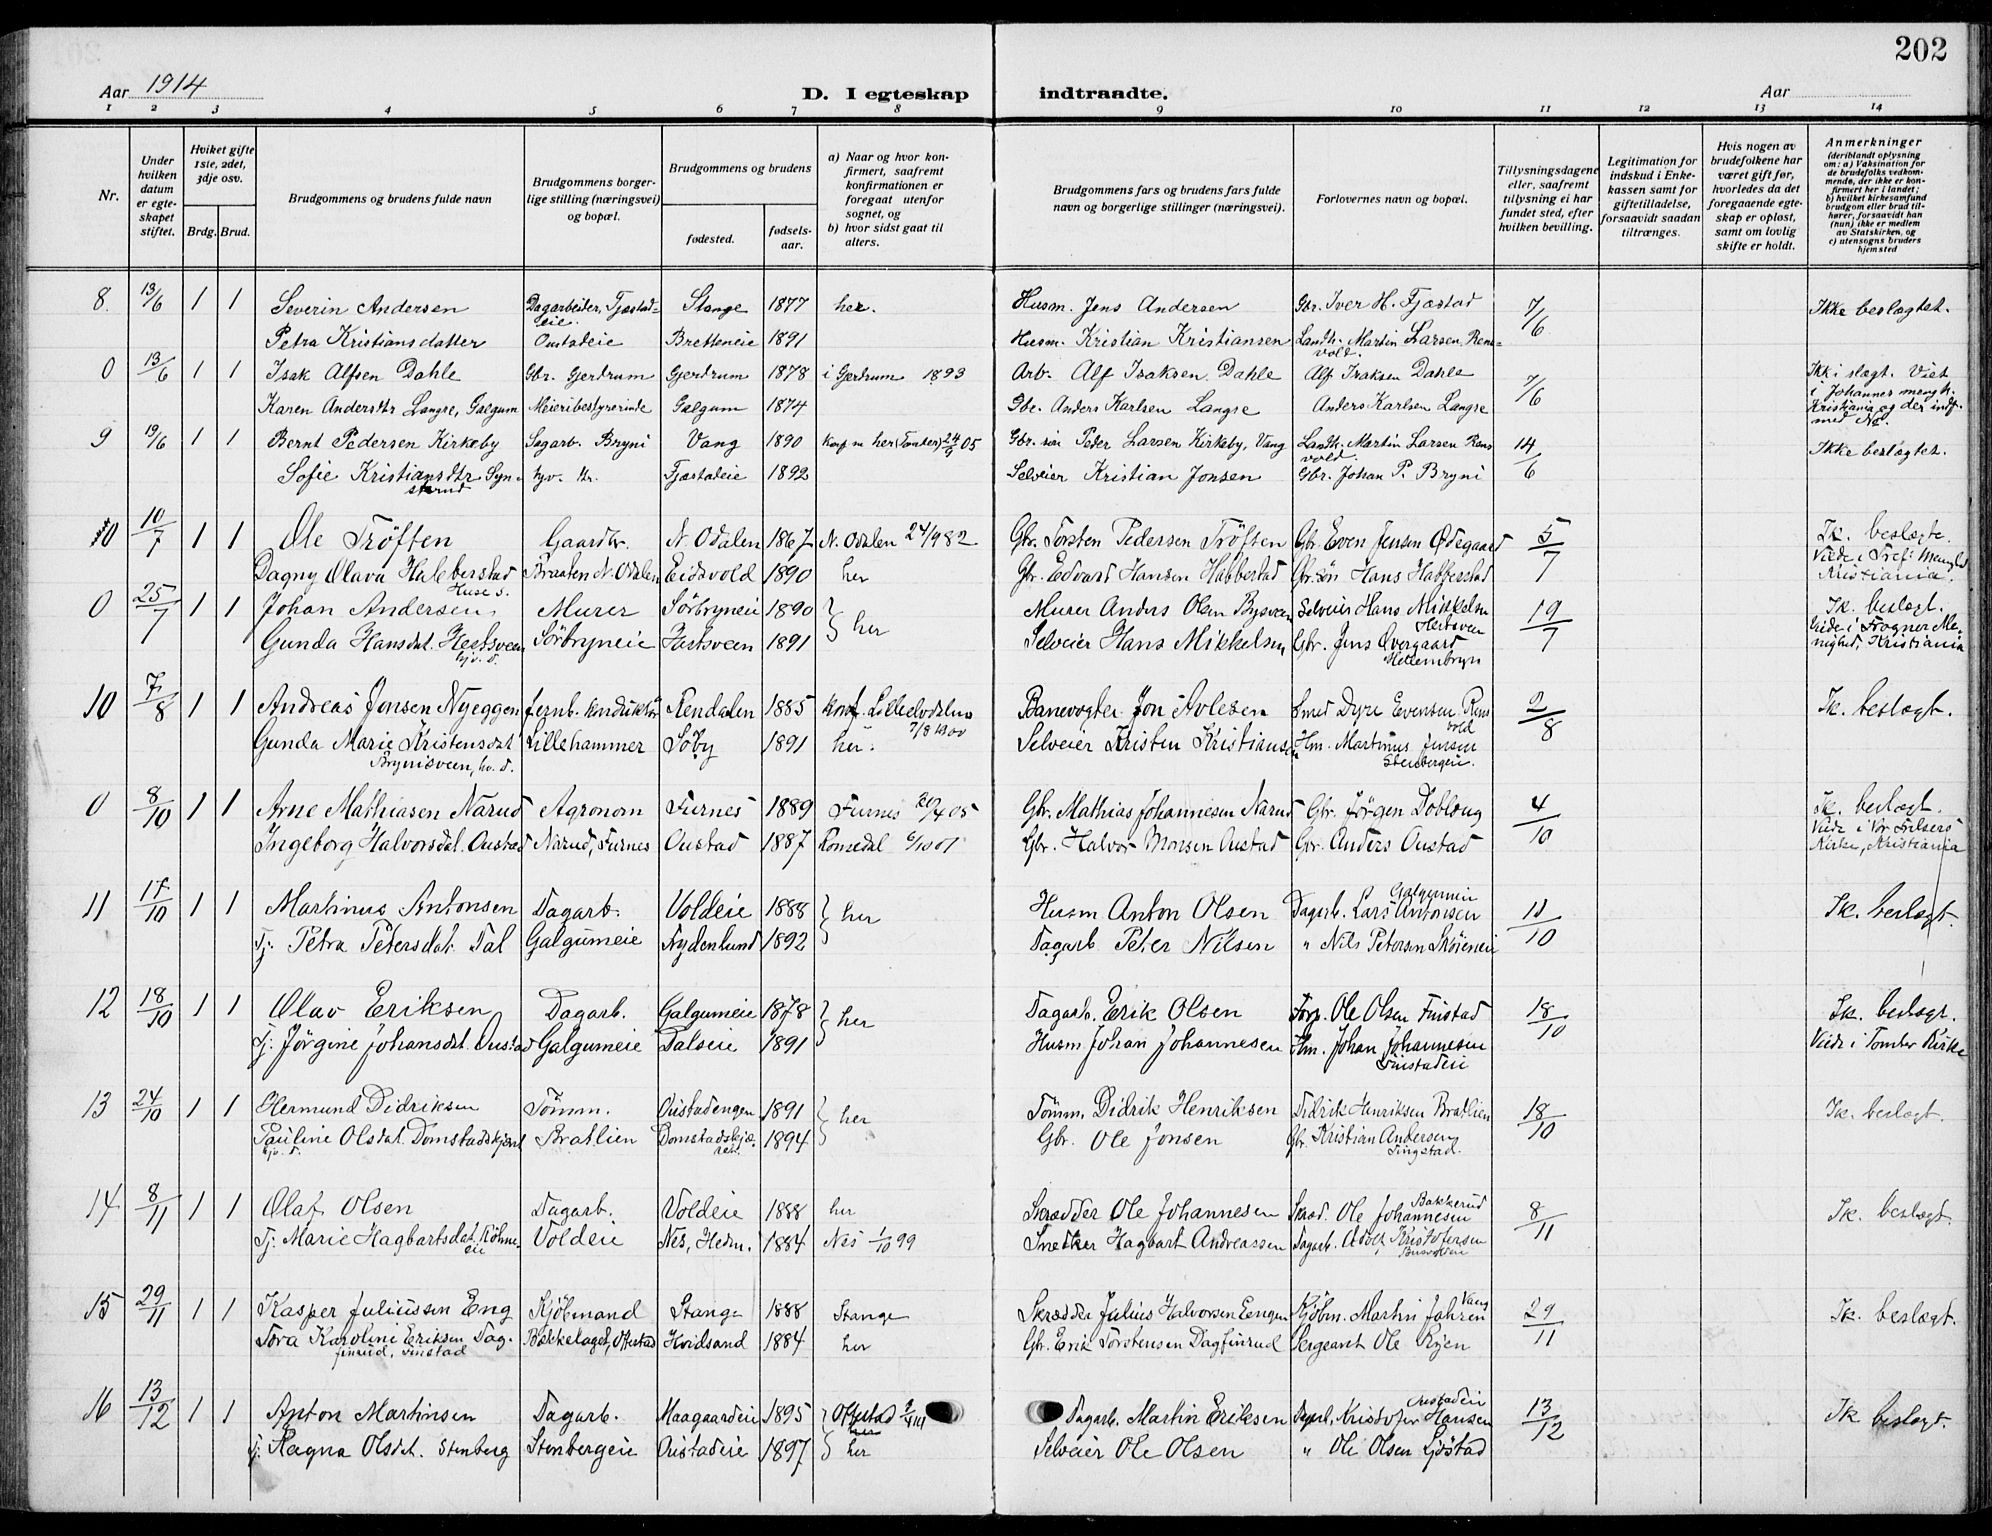 202
Aar 1914
D. I egteskap indtraadte.
Aar
1 2 3 4 5 6 7 8 9 10 11 12 13 14
Nr.
Under hvilken datum er egte-skapet stiftet.
Hviket gifte 1ste, 2det, 3dje osv.
Brdg. Brud.
Brudgommens og brudens fulde navn
Brudgommens borger-lige stilling (næringsvei) og bopæl.
Brudgommens og brudens
fødested.
fødsels-aar.
a) Naar og hvor kon-firmert, saafremt konfirmationen er foregaat utenfor sognet, og
b) hvor sidst gaat til alters.
Brudgommens fars og brudens fars fulde navn og borgerlige stillinger (næringsvei).
Forlovernes navn og bopæl.
Tillysningsdagene eller, saafremt tillysning ei har fundet sted, efter hvilken bevilling.
Legitimation for indskud i Enke-kassen samt for giftetilladelse, forsaavidt saadan tiltrænges.
Hvis nogen av brudefolkene har været gift før, hvorledes da det foregaaende egte-skap er opløst, samt om lovlig skifte er holdt.
Anmerkninger
(deriblandt oplysning om: a) Vaksination for de brudefolks vedkom-mende, der ikke er kon-firmert her i landet; b) hvilket kirkesamfund brudgom eller brud til-hører, forsaavidt han (hun) ikke er medlem av Statskirken, og c) utensogns bruders hjemsted
8. 13/6 1 1 Severin Andersen Dagarbeider, Fjæstad-eie. Stange 1877 her. Husm. Jens Andersen Gbr. Iver H. Fjæstad 7/6 Ikke beslægtet.
Petra Kristiansdatter Oustadeie Bretteneie 1891 Husm. Kristian Kristiansen Landh. Martin Larsen, Rens-vold.
0 13/6 1 1 Isak Alfsen Dahle Gbr. Gjerdrum Gjerdrum 1878 i Gjerdrum 1893 Arb. Alf Isaksen Dahle Alf Isaksen Dahle 7/6 Ikke i slægt. Viet i Johannes mengh. Kristiania og der indf. med No.
Karen Andersdtr Langse, Galgum Meieribestyrerinde Galgum 1874 Gbr. Anders Karlsen Langse Anders Karlsen Langse
9 19/6 1 1 Bernt Pedersen Kirkeby Sagarb. Bryni Vang 1890 Konf n her (Tomter) 24/9 05 Gbr. søn Peder Larsen Kirkeby, Vang Landh. Martin Larsen Rens-vold. 14/6 Ikke beslægtet.
Sofie Kristiansdtr Syn-sterud hjv. dtr. Fjæstadeie 1892 Selveier Kristian Jonsen Gbr. Johan P. Bryni
10 10/7 1 1 Ole Tröften Gaardbr. N. Odalen 1867 N. Odalen 24/9 82 Gbr. Torsten Pedersen Tröften Gbr. Even Jensen Ödegaard 5/7 Ik. beslægte.
Dagny Olava Habberstad Huse d. Braaten N. Odalen Eidsvold 1890 her Gbr. Edvard Hansen Habberstad Gbr.søn Hans Habberstad Viede i Tref. Menghed Kristiania.
0 25/7 1 1 Johan Andersen Murer Sörbryneie 1890 her Murer Anders Olsen Selveier Hans Mikkelsen Hestsveen 19/7 Ik. beslægt.
Gunda Hansdat. Hestsveen hjv. d. Sörbryneie Hestsveen 1891 Selveier Hans Mikkelsen Gbr. Jens Övergaard Viede i Frogner Me-nighed, Kristiania
10 7/8 1 1 Andreas Jonsen Nyeggen Jernb. konduktör Rendalen 1885 konf. Lilleelvdalen 7/8 1900 Banevogter Jon Avlesen Smed Dyre Evensen Rens vold 2/8 Ik. beslægt.
Gunda Marie Kristensdat Brynisveen, hv. d. Lillehammer Söby 1891 her. Selveier Kristen Kristiansen Hm. Martinus Jensen Stenbergeie.
0 8/10 1 1 Arne Mathiasen Narud Agronom Furnes 1889 Furnes 20/4 05 Gbr. Mathias Johannesen Narud Gbr. Jörgen Dobloug 4/10 Ik. beslægt.
Ingeborg Halvorsdat. Oustad Narud, Furnes Oustad 1887 Romedal 6/10 01 Gbr. Halvor Monsen Oustad Gbr. Anders Oustad Viede i Vor Frelsers Kirke, Kristiania
11 17/10 1 1 Martinus Antonsen Dagarb. Voldeie 1888 her Husm Anton Olsen Dagarb. Lars Antonsen Galgumeie 11/10 Ik. beslægt.
Tj. Petra Petersdat. Dal Galgumeie Nydenlund 1892 Dagarb. Peter Nilsen " Nils Petersen Sköieneie
12 18/10 1 1 Olav Eriksen Dagarb. Galgumeie 1878 her Dagarb. Erik Olsen Forp. Ole Olsen Finstad 18/10 Ik. beslægt.
Tj. Jörgine Johansdat. Oustad Galgumeie Dalseie 1891 Husm Johan Johannesen Hm. Johan Johannesen Finstadeie Viede i Tomter Kirke
13 24/10 1 1 Hermund Didriksen Tömm. Oustadengen 1891 her Tömm. Didrik Henriksen Didrik Henriksen Bratlien 18/10 Ik. beslægt.
Pauline Olsdat. Domstadskjæret hjv. d. Bratlien Domstadskjæ-ret. 1894 Gbr. Ole Jonsen Gbr. Kristian Andersen Tingstad.
14 8/11 1 1 Olaf Olsen Dagarb. Voldeie 1888 her Skrædder Ole Johannesen Skræd. Ole Johannesen Bakkerud 8/11 Ik. beslægt.
Tj. Marie Hagbartsdat. Köhme-eie Voldeie Nes, Hedm. 1884 Nes 1/10 99 Snekker Hagbart Andreassen Dagarb. Adolf Kristofersen
15 29/11 1 1 Kasper Juliussen Eng Kjöbmand Stange 1888 Stange Skrædder Julius Halvorsen Eengen Kjöbm. Martin Jahren Vang 29/11 Ik. beslægt.
Tora Karoline Eriksen Dag-finrud, Finstad Bækkelaget, Ottestad Hvidsand 1884 her Gbr. Erik Torstensen Dagfinrud Sergeant Ole Ryen
16 13/12 1 1 Anton Martinsen Dagarb. Maagaardeie 1895 Ottestad her Dagarb. Martin Eriksen Dagarb. Kristofer Hansen Oustadeie 13/12 Ik beslægt.
Tj. Ragna Olsdat. Stenberg Stenbergeie Oustadeie 1897 her Selveier Ole Olsen " Ole Olsen Sjöstad